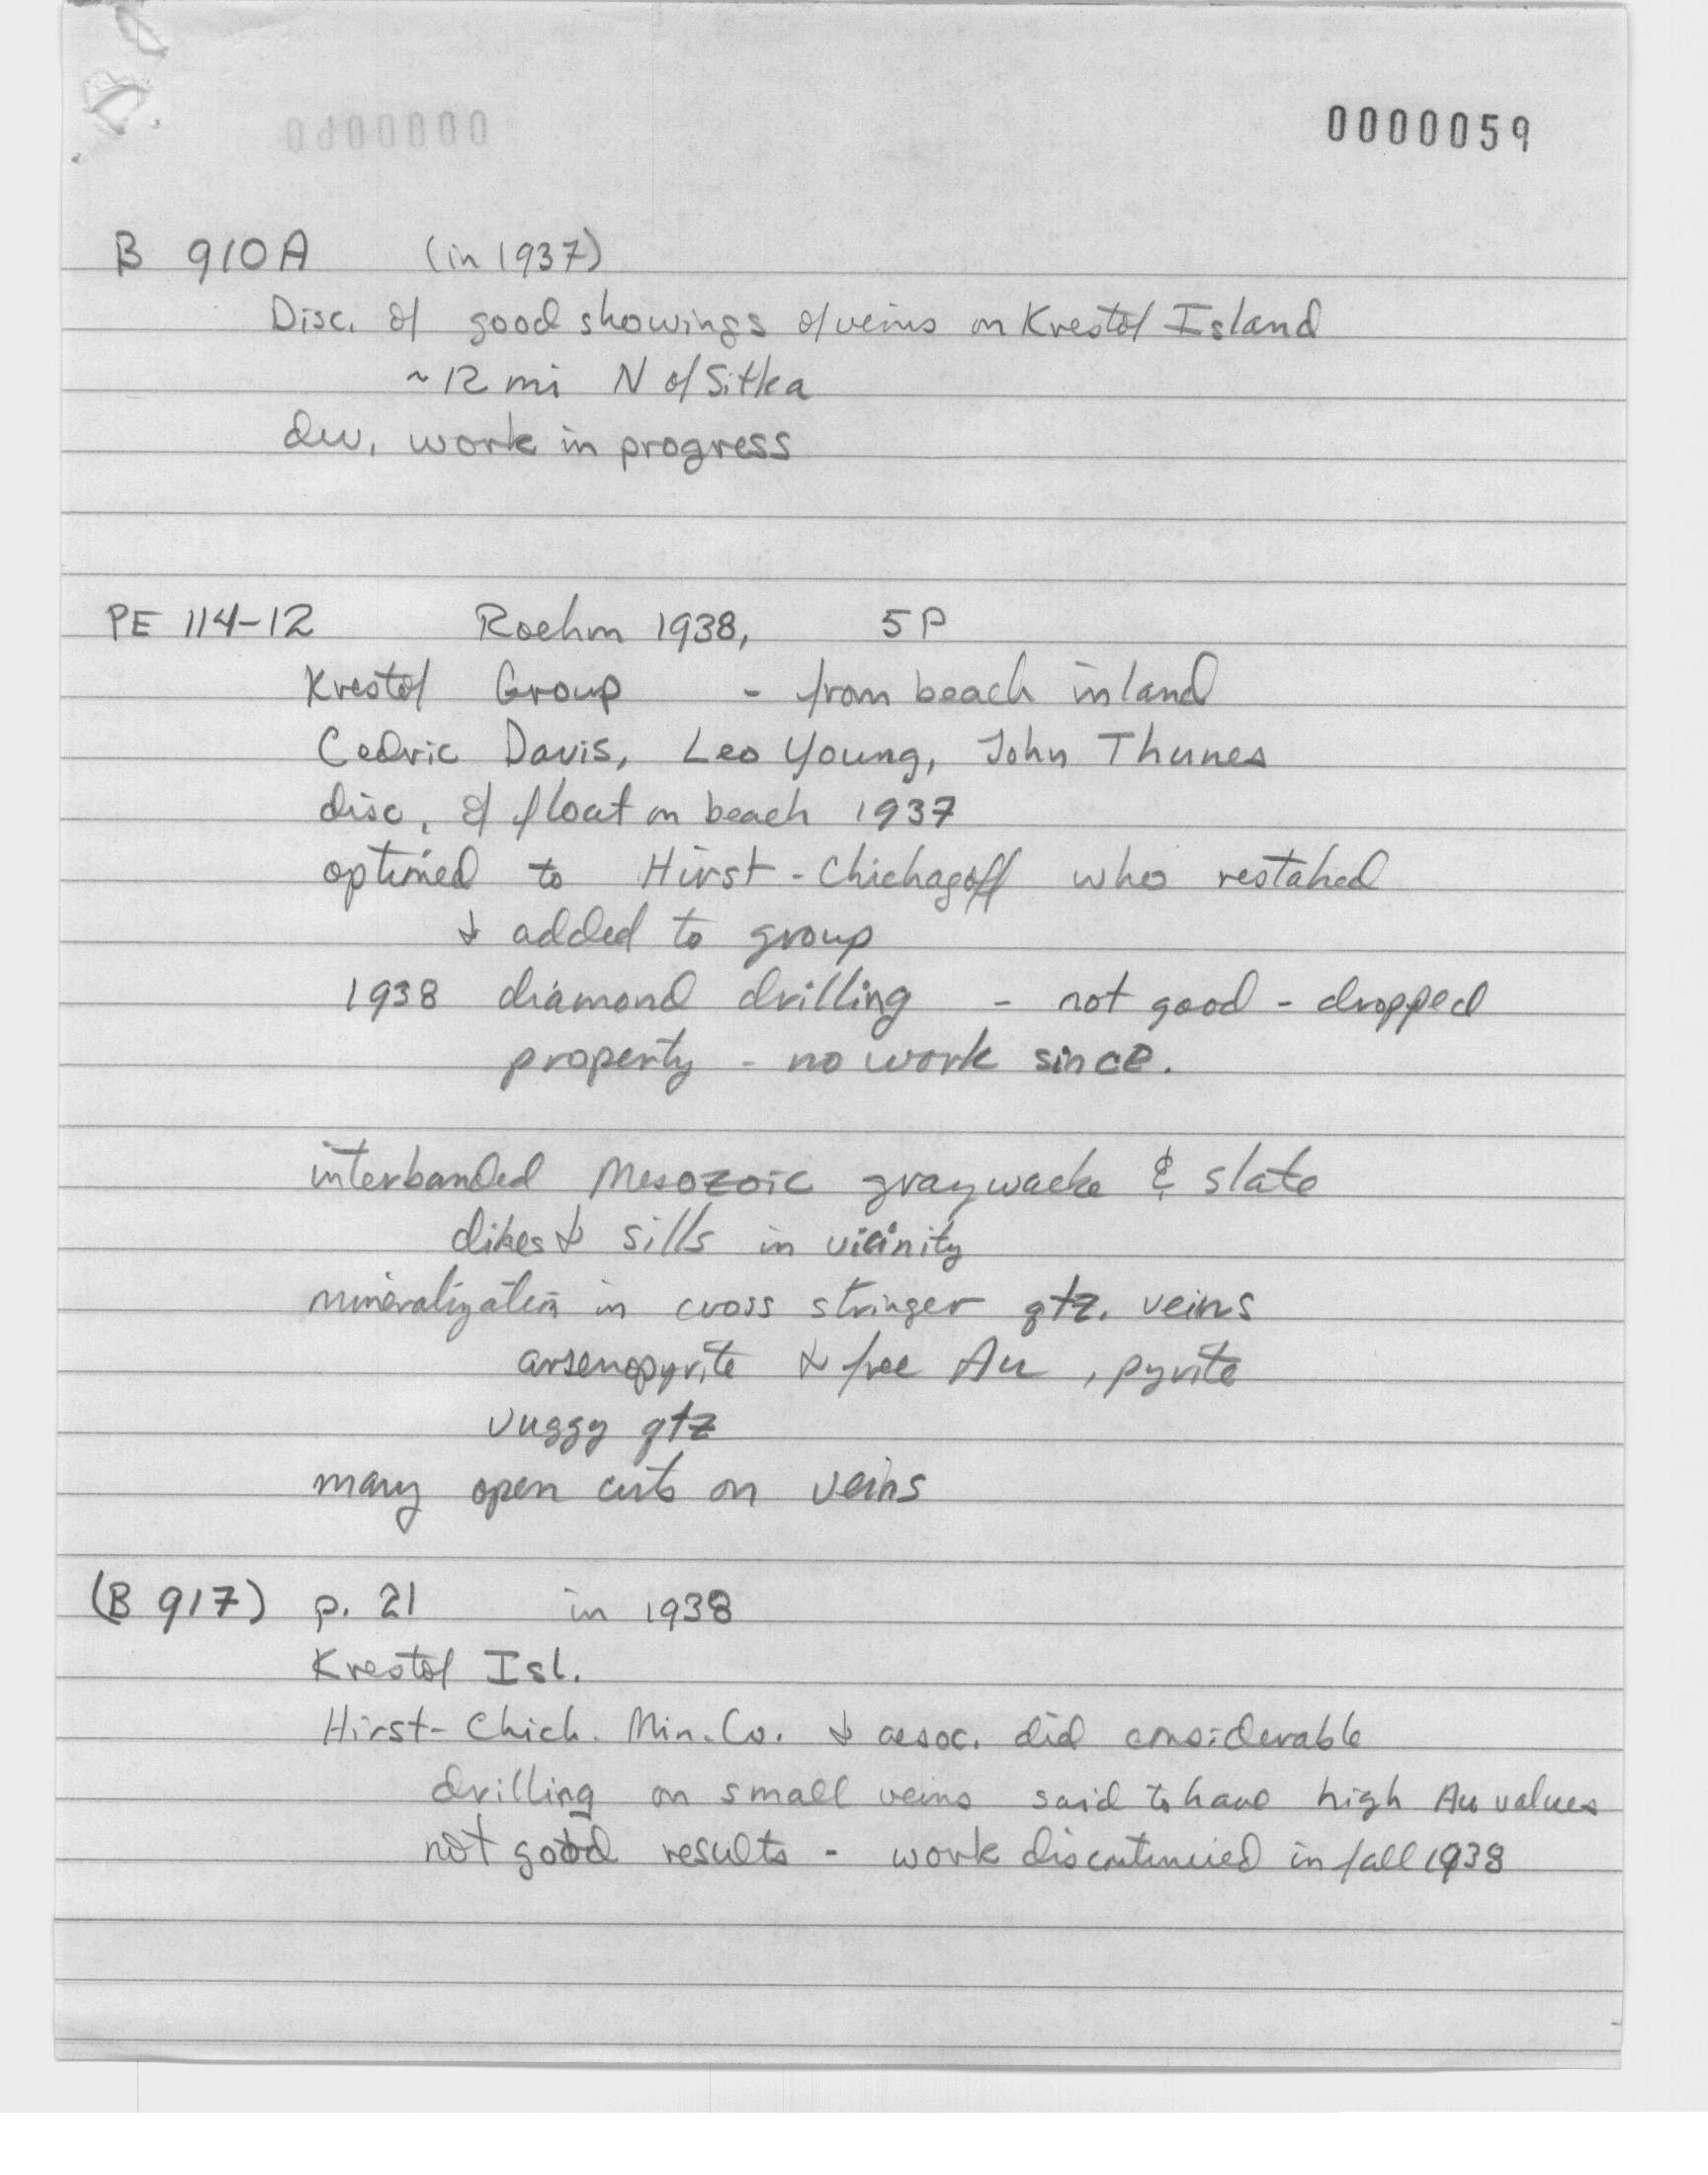 0000059
B 910A (in 1937)
Disc. of good showings of veins on Krestof Island
~ 12 mi N of Sitka
dev. work in progress
PE 114-12 Roehm 1938, 5P
Krestof Group - from beach inland
Cedric Davis, Leo Young, John Thunes
disc. of float on beach 1937
optioned to Hirst-Chichagoff who restaked
& added to group
1938 diamond drilling - not good - dropped
property - no work since.
interbanded Mesozoic graywacke & slate
dikes & sills in vicinity
mineralization in cross stringer qtz. veins
arsenopyrite & free Au, pyrite
vuggy qtz
many open cuts on veins
(B 917) p. 21 in 1938
Krestof Isl.
Hirst-Chich. Min. Co. & assoc. did considerable
drilling on small veins said to have high Au values
not good results - work discontinued in fall 1938